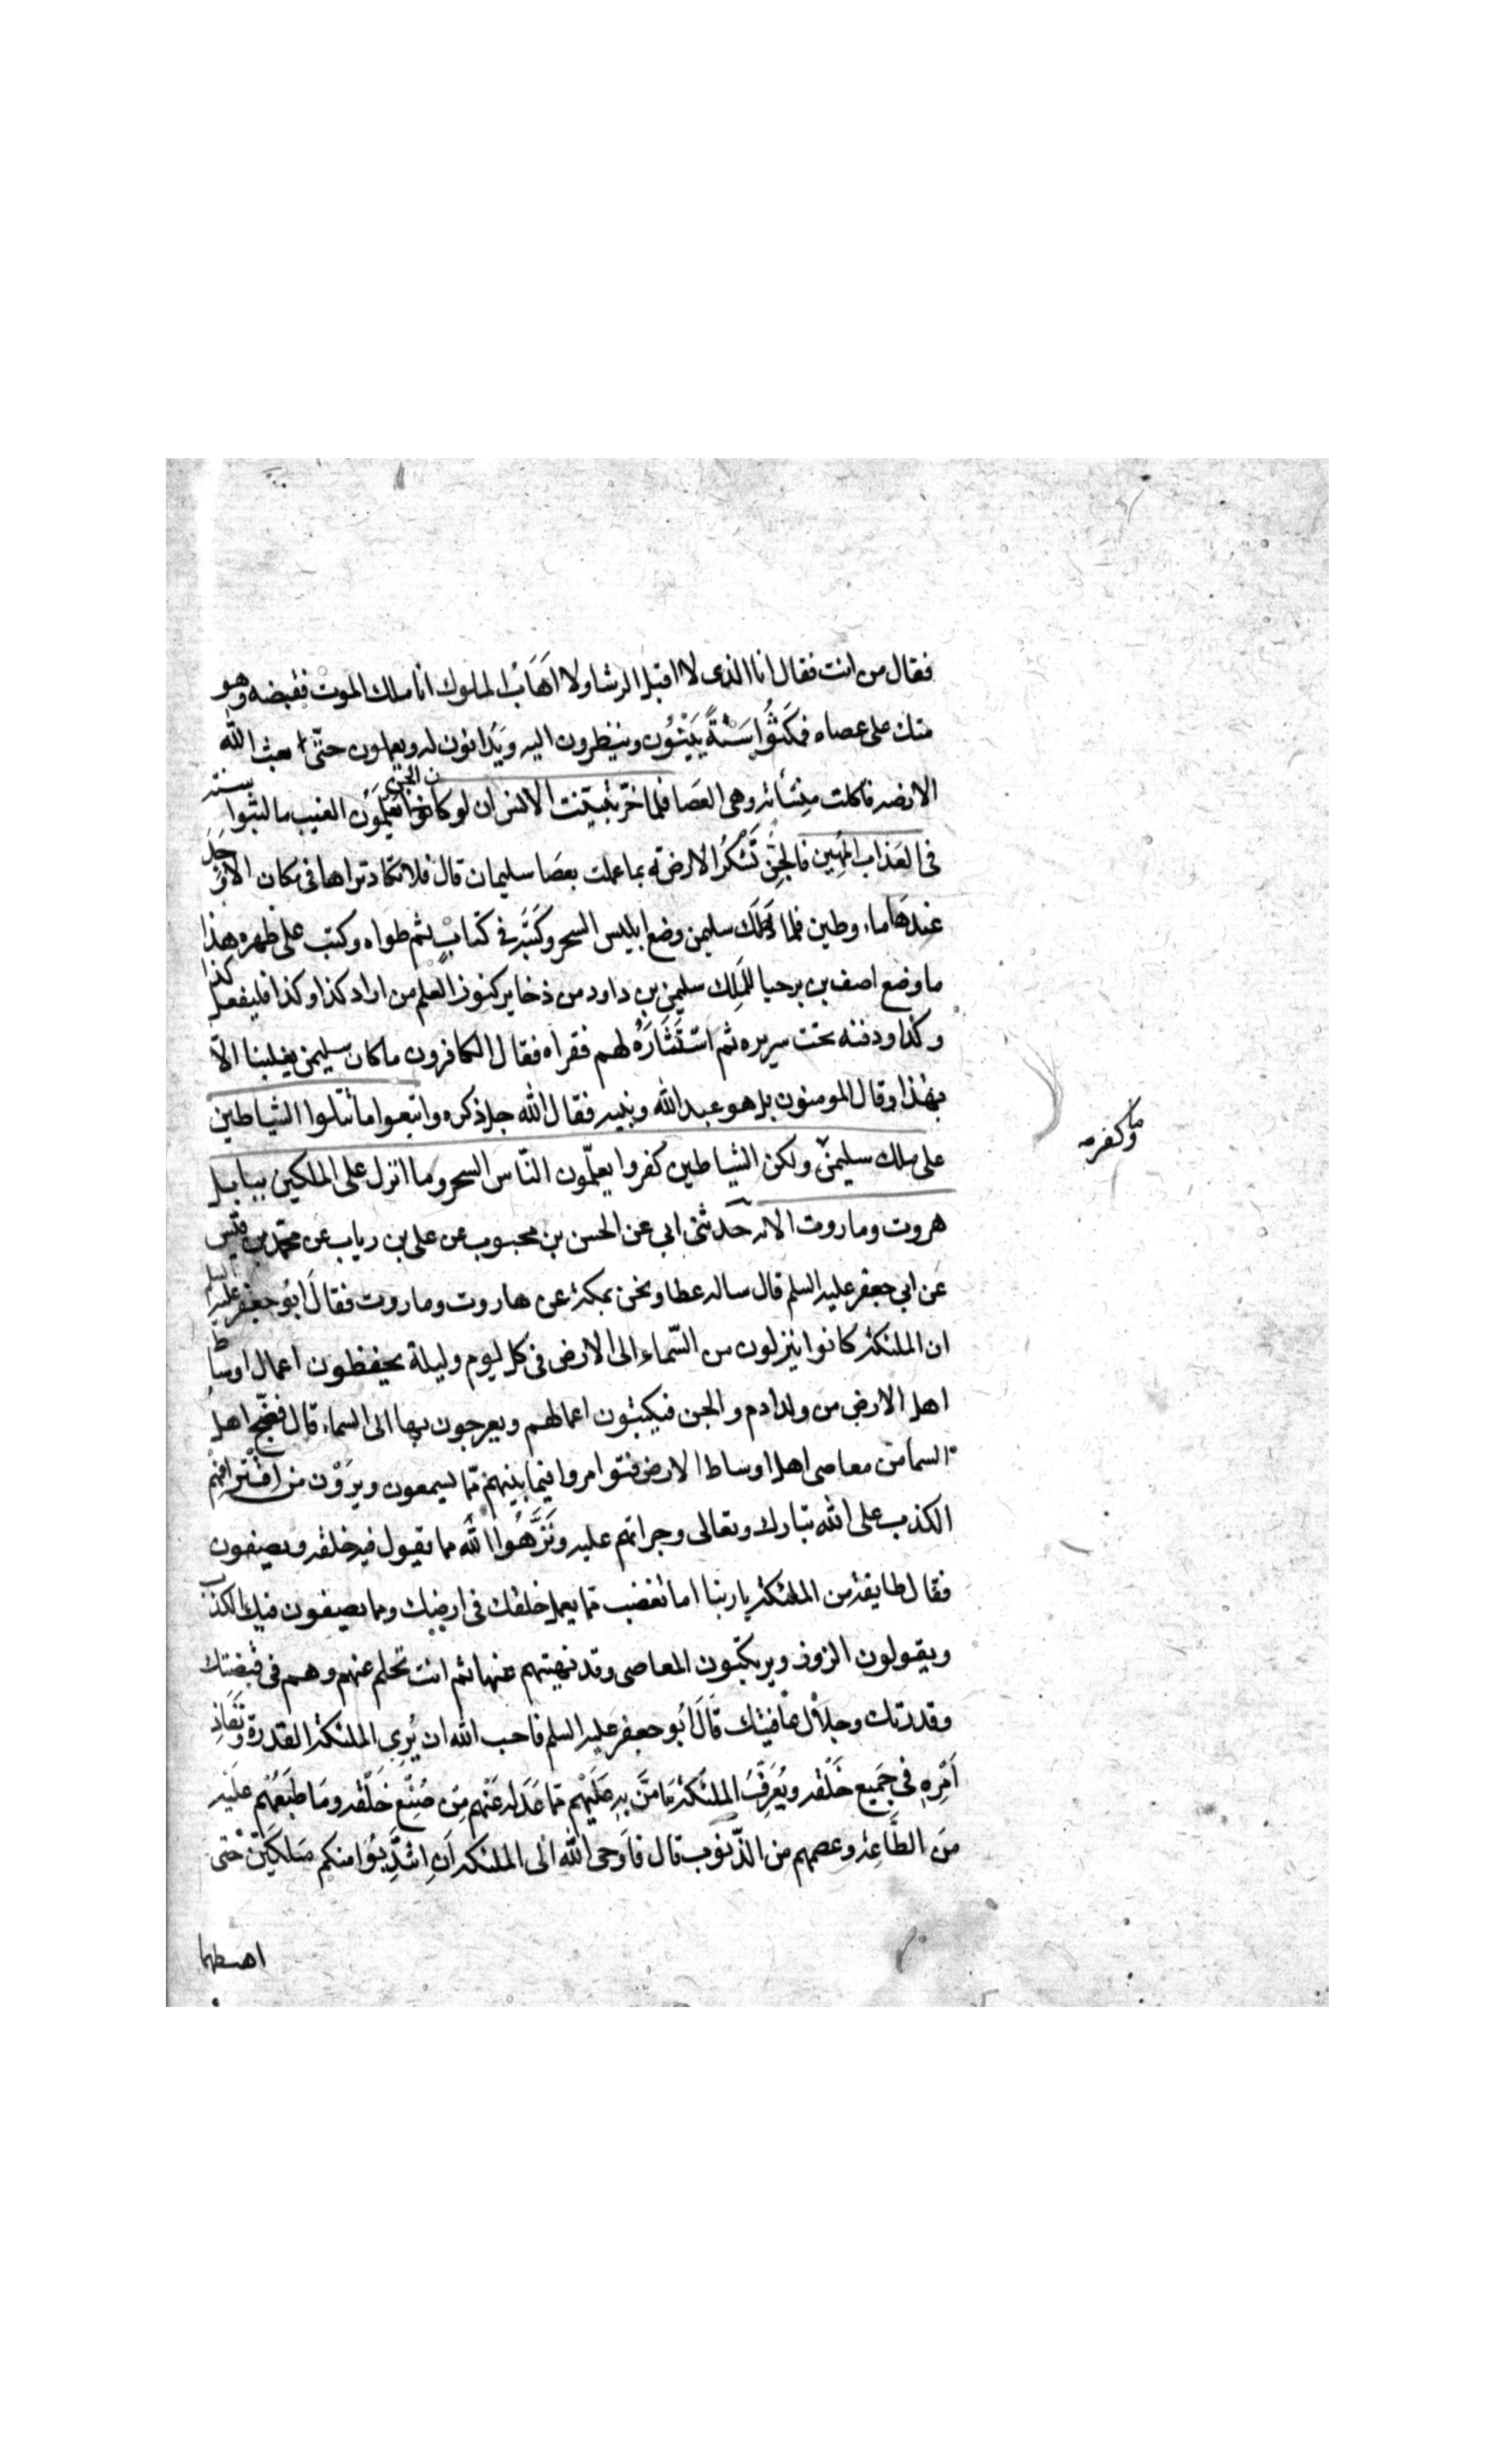 فقال من انت فقال انا الذى لا اقبل الرشا ولا اَهَابُ الملوك انا ملك الموت فقبضه وهو
متك على عصاه فمَكَثُوا سَنَةً يَبْنُون وينظرون اليه ويَدانون له ويعملون حتّى بعث الله
الارضه فاكلت مِنسَأته وهى العَصَا فلما خرّ تبيّنت الانس ان لو كانوا يَعْلَمُون الغيب ما لبثوا سنته
ن الجن
فى العَذاب المُهِين فالجِنّ تَشْكُرُ الارضة بما عملت بعَصَا سليمان قال فلا تكاد تراها فى مكان الا وُجِدَ
عِندَهَا ماء وطين فلما هَلَك سليمن وضع ابليس السحر وكَتَبَه فى كتابٍ ثم طواه وكتب على ظهره هذا
ما وضع اصف بن برحيا للمَلِك سليمن بن داود من ذخاير كنوز العلم من اراد كذا وكذا فليفعل كذا
وكذا ودفنه تحت سريره ثم اسْتَثَارَهُ لهم فقراه فقال الكافرون ما كان سليمن يغلبنا الاّ
بهٰذا وقال المومنون بل هو عبد الله ونبيه فقال الله جل ذكره واتبعوا ما تتلوا الشياطين
على ملك سليمن ولكن الشياطين كفروا يعلّمون النّاس السحر وما انزل على الملكين ببابل
وما كفر
هروت وماروت الايه حدثنى ابى عن الحسن بن محبوب عن على بن رياب عن محمّد بن قيس
عن ابى جعفر عليه السلم قال ساله عطا ونحن بمكة عن هاروت وماروت فقال ابُو جعفر عليه السلم
ان الملئكة كانوا ينزلون من السّماء الى الارض فى كل يوم وليلة يحفظون اعمال اوساط
اهل الارض من ولد ادم والجن فيكتبون اعمالهم ويعرجون بها الى السماء قال فضجّ اهل
السما من معاصى اهل اوساط الارض فتوامروا فيما بينهم ممّا يسمعون ويرَوْن من افْتْرَائهم
الكذب على الله تبارك وتعالى وجراتهم عليه ونَزَّهُوا الله مما يقول فيه خلقه ويصفون
فقال طايفة من الملئكة يا ربنا اما تغضب مما يعمل خلقك فى ارضك ومما يصفون فيك الكذب
ويقولون الزور ويرتكبون المعاصى وقد نهيتهم عنها ثم انت تحلم عنهم وهم فى قبضتك
وقدرتك وخلال عافيتك قالَ ابُو جعفر عليه السلم فاحب الله ان يُرِى الملئكة القدرة ونَفَاذِ
اَمْرِهِ فى جَمِيع خَلْقه ويُعَرِّفُ الملئكة مَا مَنَّ بِهِ عَلَيْهِم ممّا عَدَله عَنْهم مِن صُنْعِ خَلْقه ومَا طَبَعَهُم عَلَيْه
مِنَ الطَّاعة وعصمهم من الذّنوب قال فاَوحى الله الى الملئكة اَن انْتَدِبُوا منكم مَلَكَيْن حتى
اهبطهما